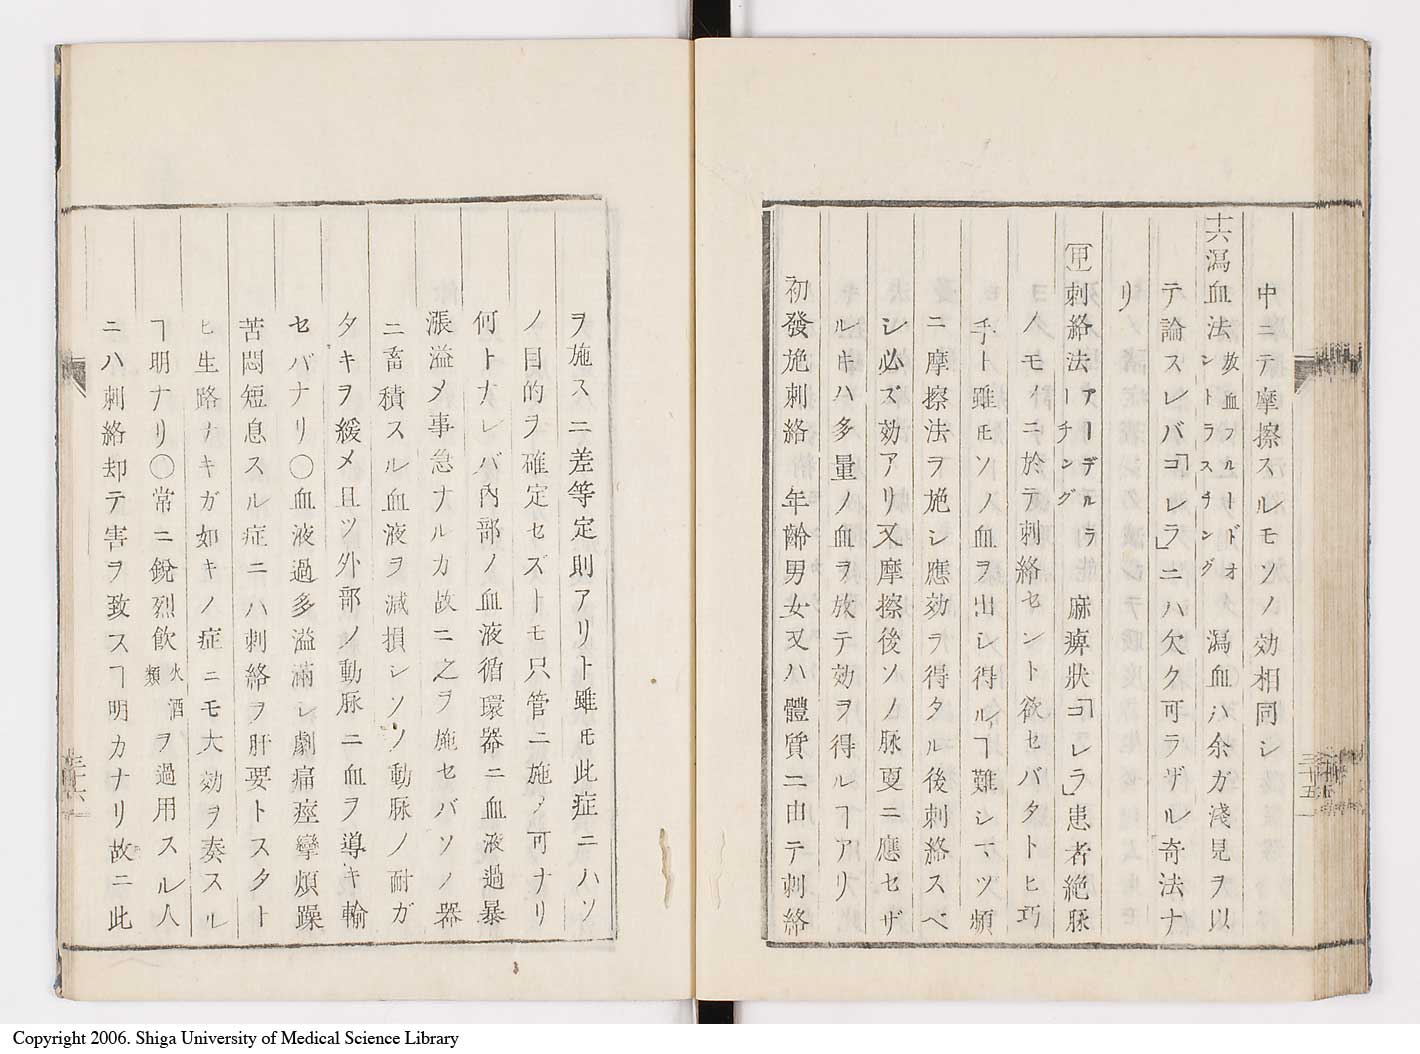 中ニテ摩擦スルモソノ効相同シ
十六瀉血法 放血フルトドオントラスチング 瀉血ハ余ガ淺見ヲ以
テ論スレバ「コレラ」ニハ欠ク可ラザル奇法ナ
リ
甲刺絡法 アーデルラーチング 麻痺狀「コレラ」患者絶脉
ノモノニ於テ刺絡セント欲セバタトヒ巧
手ト雖モソノ血ヲ出シ得ルヿ難シマツ頻
ニ摩擦法ヲ施シ應効ヲ得タル後刺絡スベ
シ必ズ効アリ又摩擦後ソノ脉更ニ應セザ
ルキハ多量ノ血ヲ放テ効ヲ得ルヿアリ
初發施刺絡 年齡男女又ハ體質ニ由テ刺絡
ヲ施スニ差等定則アリト雖モ此症ニハソ
ノ目的ヲ確定セズトモ只管ニ施ノ可ナリ
何トナレバ內部ノ血液循環器ニ血液過暴
漲溢メ事急ナルカ故ニ之ヲ施セバソノ器
ニ畜積スル血液ヲ減損シソノ動脉ノ耐ガ
タキヲ緩メ且ツ外部ノ動脉ニ血ヲ導キ輸
セバナリ〇血液過多溢滿シ劇痛痙攣煩躁
苦悶短息スル症ニハ刺絡ヲ肝要トスタト
ヒ生路ナキガ如キノ症ニモ大効ヲ奏スル
ヿ明ナリ〇常ニ銳烈飲火酒類ヲ過用スル人
ニハ刺絡却テ害ヲ致スヿ明カナリ故ニ此
三十五
三十六
Copyright 2006. Shiga University of Medical Science Library